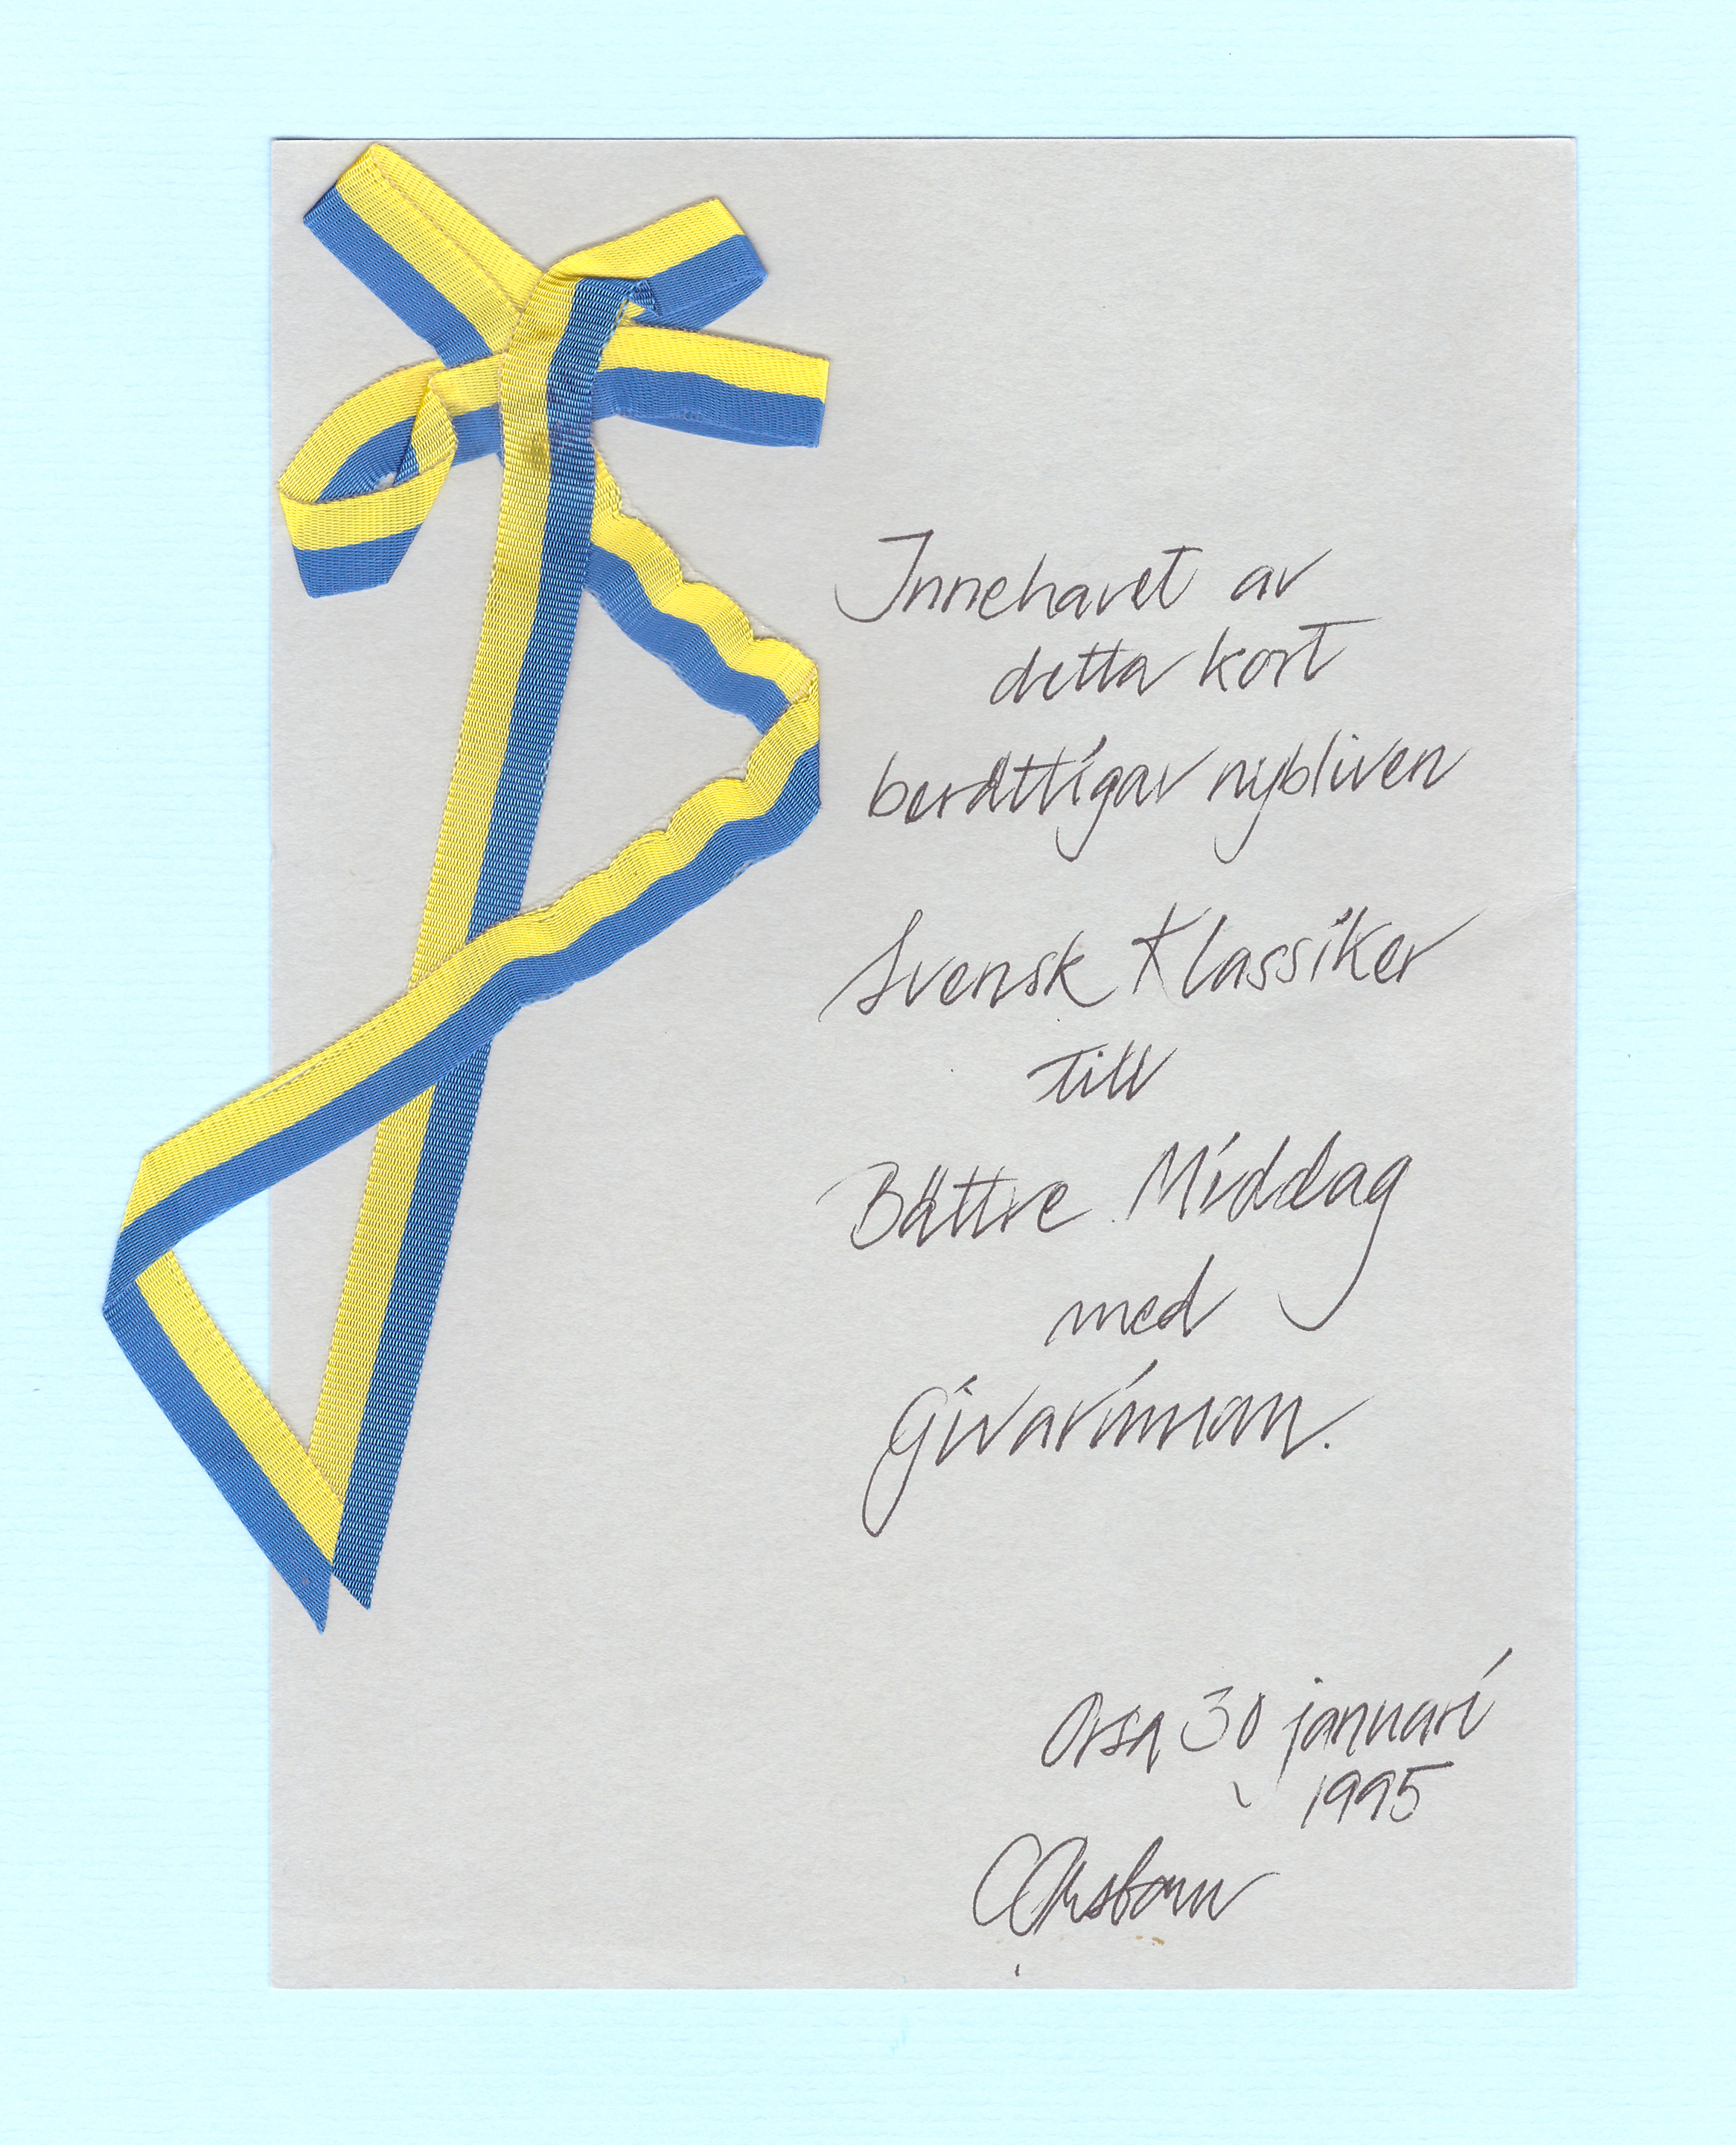 Innehavet av
detta kort
berättigar nybliven
Svensk Klassiker
till
Bättre Middag
med
Givarinnan.
Orsa 30 januari
1995